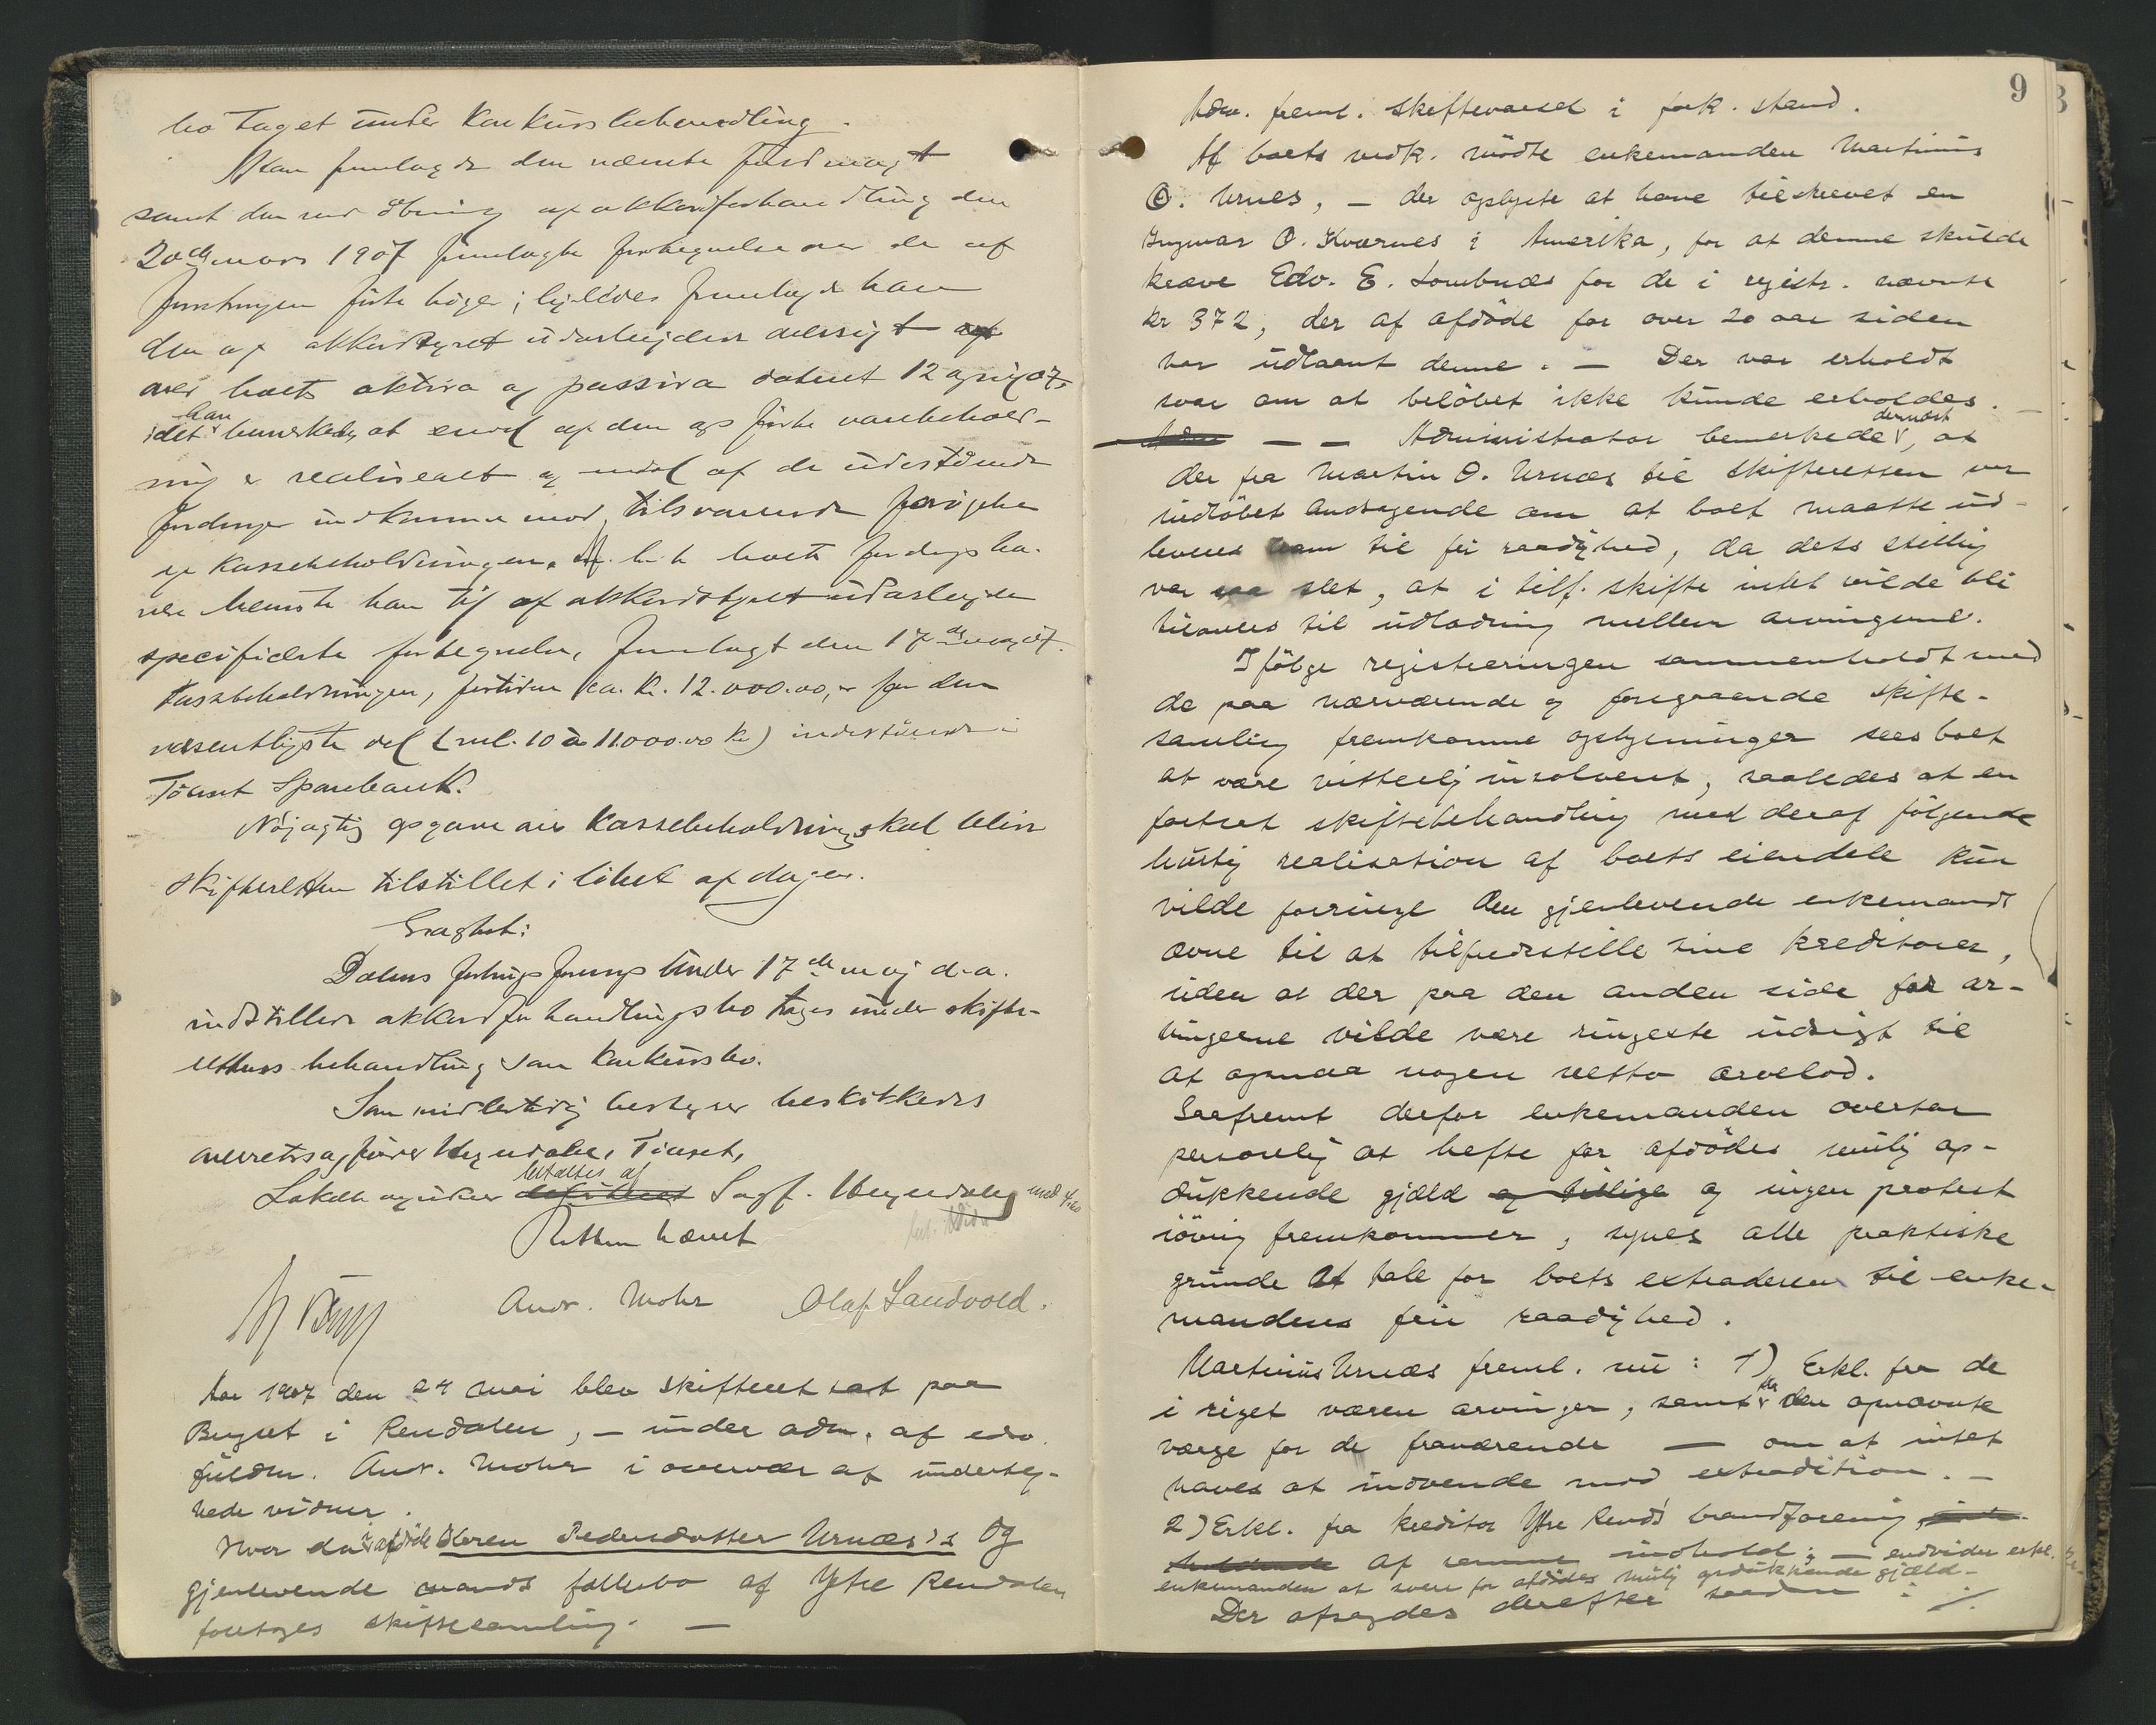 bo taget under konkursbehandling.
Man fremlagde den nævnte fuldmagt
samt den ved åbning af akkordforhandling den
20de mars 1907 fremlagte fortegnelse over de af
forretningen førte bøger; ligeledes fremlagde han
den af akkordstyret udarbeidede oversigt
over boets aktiva og passiva dateret 12 april 07,
idet han bemerkede, at endel af den op førte varebehold-
ning er realiseret og endel af de udestående
fordringer indkomne mod tilsvarende forøgelse
af kassebeholdningen. boets
han til af akkordstyret udarbeidede
specificerte fortegnelse, fremlagt den 17de maj 07.
Kassebeholdningen, fortiden ca. kr. 12.000.00, er for den
væsentligste del (ml. 10 à 11.000.00 kr) indestående i
Tönset Sparebank.
Nöjagtig opgave over kassebeholdning skal blive
skifteretten tilstillet i löbet af dagen.
Eragtet:
Dalens forhings under 17de maj d.a.
indstillede akkordforhandlingsbo tages under skifte-
rettens behandling som konkursbo.
Som midlertidig bestyrer beskikkedes
overretssagfører Uly Tönset,
Lokale betaltes af Sagf. med 4.00
Retten hævet
Andr. Mohr Olaf Sandvold.
Aar 1907 den 24 mai blev skifteret sat paa
Berget i Rendalen, – under adm. af edv.
fuldm. Andr. Mohr i overvær af underteg-
nede vidner.
Hvor da i afdöde Karen Pedersdatter Urnæs's og
gjenlevende mands fællesbo af Ytre Rendalen
foretoges skiftesamling. –
9
Adm. freml. skiftevarsel i fork. stand.
Af boets vedk. mödte enkemanden Martinus
O. Urnes, – der oplyste at have tilskrevet en
Ingvar O. Kværnes i Amerika, for at denne skulde
kræve Edv. E. Lombnæs for de i registr. nævnte
kr 372, der af afdöde for over 20 aar siden
var udlaant denne. – Der var erholdt
svar om at belöbet ikke kunde erholdes. –
– – Administrator bemerkede dernæst, at
der fra Martin O. Urnæs til skifteretten var
indlöbet andragende om at boet maatte ud-
leveres ham til fri raadighed, da dets stilling
var saa slet, at i tilf. skifte intet vilde bli
tilovers til udlodning mellem arvingerne.
Ifölge registreringen sammenholdt med
de paa nærværende og foregaaende skifte-
samling fremkomne oplysninger sees boet
at være vitterlig insolvent, saaledes at en
fortsat skiftebehandling med deraf fölgende
hurtig realisation af boets eiendele kun
vilde forringe den gjenlevende enkemands
ævne til at tilfredsstille sine kreditorer,
uden at der paa den anden side for ar-
vingerne vilde være ringeste udsigt til
at opnaa nogen netto arvelod.
Saafremt derfor enkemanden overtar
personlig at hefte for afdödes mulig op-
dukkende gjæld og tillige og ingen protest
iövrig fremkommer, synes alle praktiske
grunde at tale for boets extradering til enke-
mandens frie raadighed.
Martinus Urnæs freml. nu: 1) Erkl. fra de
i riget væren arvinger, samt fra den opnævnte
værge for de fraværende — om at intet
haves at indvende mod extradition. –
2) Erkl. fra kreditor Ytre Rend's brandforening
af samme indhold; – endvidere erkl.
enkemanden at svare for afdödes mulig opdukkende gjæld –
Der afsagdes derefter saadan : ⁒